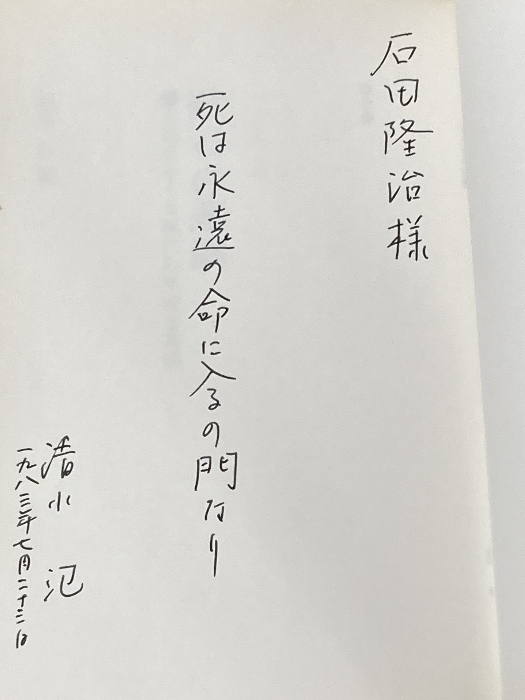 石田隆治様
死は永遠の命に入るの門なり
清水 氾
一九八三年七月二十三日